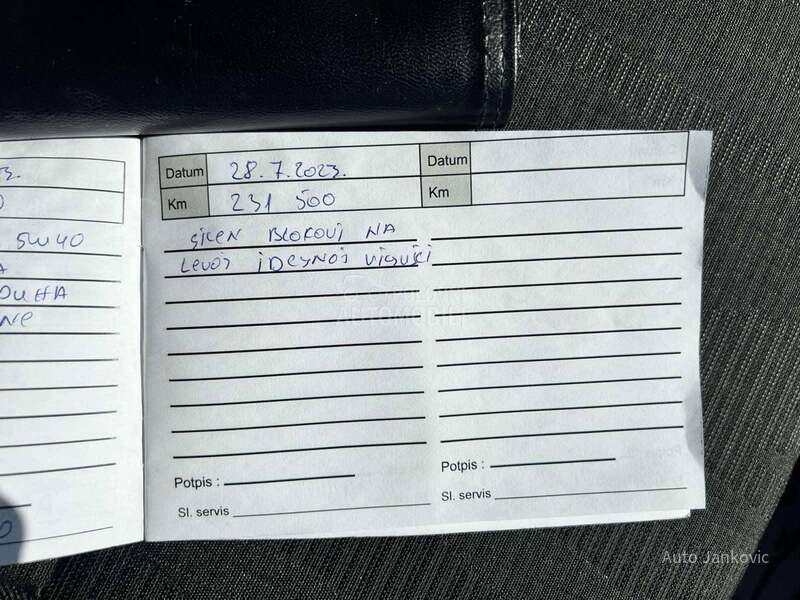 3.
0
5W40
A
NE
Datum 28.7.2023.
Km 231 500
SILEN BLOKOVI NA
LEVOJ I DESNOJ VIQUŠI
Potpis :
Sl. servis
Datum
Km
Potpis :
Sl. servis
Auto Jankovic